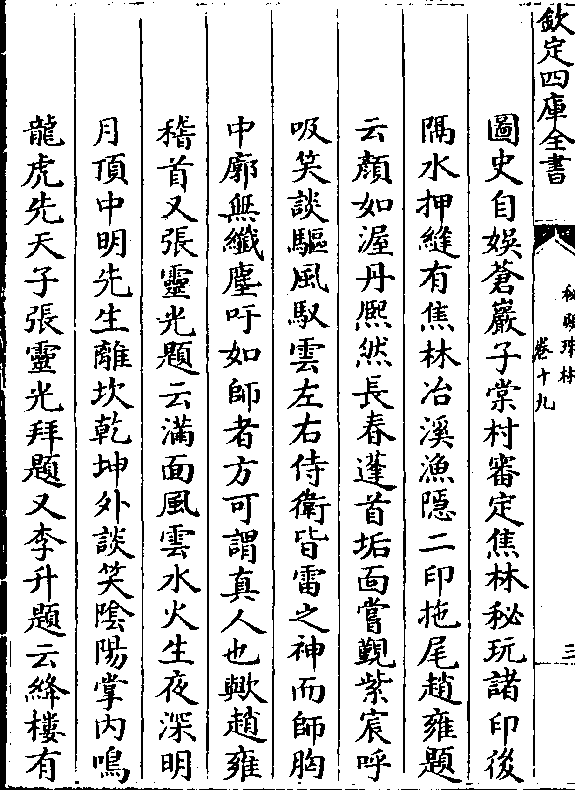 欽定四庫全書
秘殿珠林
卷十九
三
圖史自娯蒼巖子棠村審定焦林秘玩諸印後
隔水押縫有焦林冶溪漁隱二印拖尾趙雍題
云顔如渥丹熈然長春蓬首垢面嘗覲紫宸呼
吸笑談驅風馭雲左右侍衛皆雷之神而師胸
中廓無纖塵吁如師者方可謂真人也歟趙雍
稽首又張靈光題云滿面風雲水火生夜深明
月頂中明先生離坎乾坤外談笑陰陽掌内鳴
龍虎先天子張靈光拜題又李升題云絳樓有